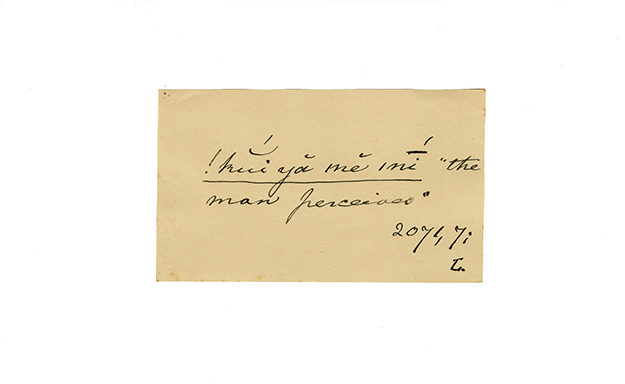 !kŭi yă mĕ ĭnī́ "the
man perceives"
2071, 7;
L.